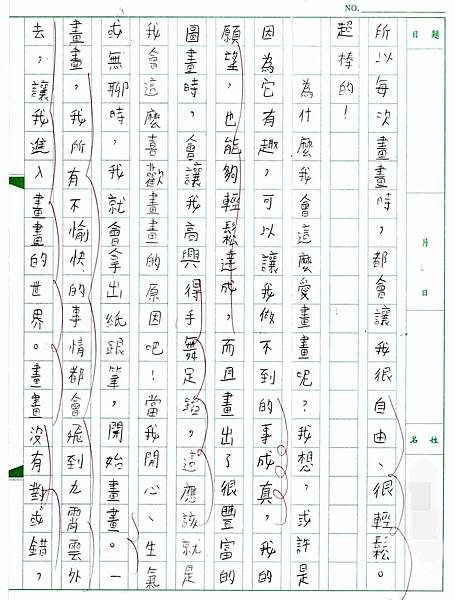 NO.
題目
月 日
姓名
所以每次畫畫時，都會讓我很自由、很輕鬆。
超棒的！
為什麼我會這麼愛畫畫呢？我想，或許是
因為它有趣，可以讓我做不到的事成真，我的
願望，也能夠輕鬆達成，而且畫出了很豐富的
圖畫時，會讓我高興得手舞足蹈，這應該就是
我會這麼喜歡畫畫的原因吧！當我開心、生氣
或無聊時，我就會拿出紙跟筆，開始畫畫。一
畫畫，我所有不愉快的事情都會飛到九霄雲外
去，讓我進入畫畫的世界。畫畫沒有對或錯，